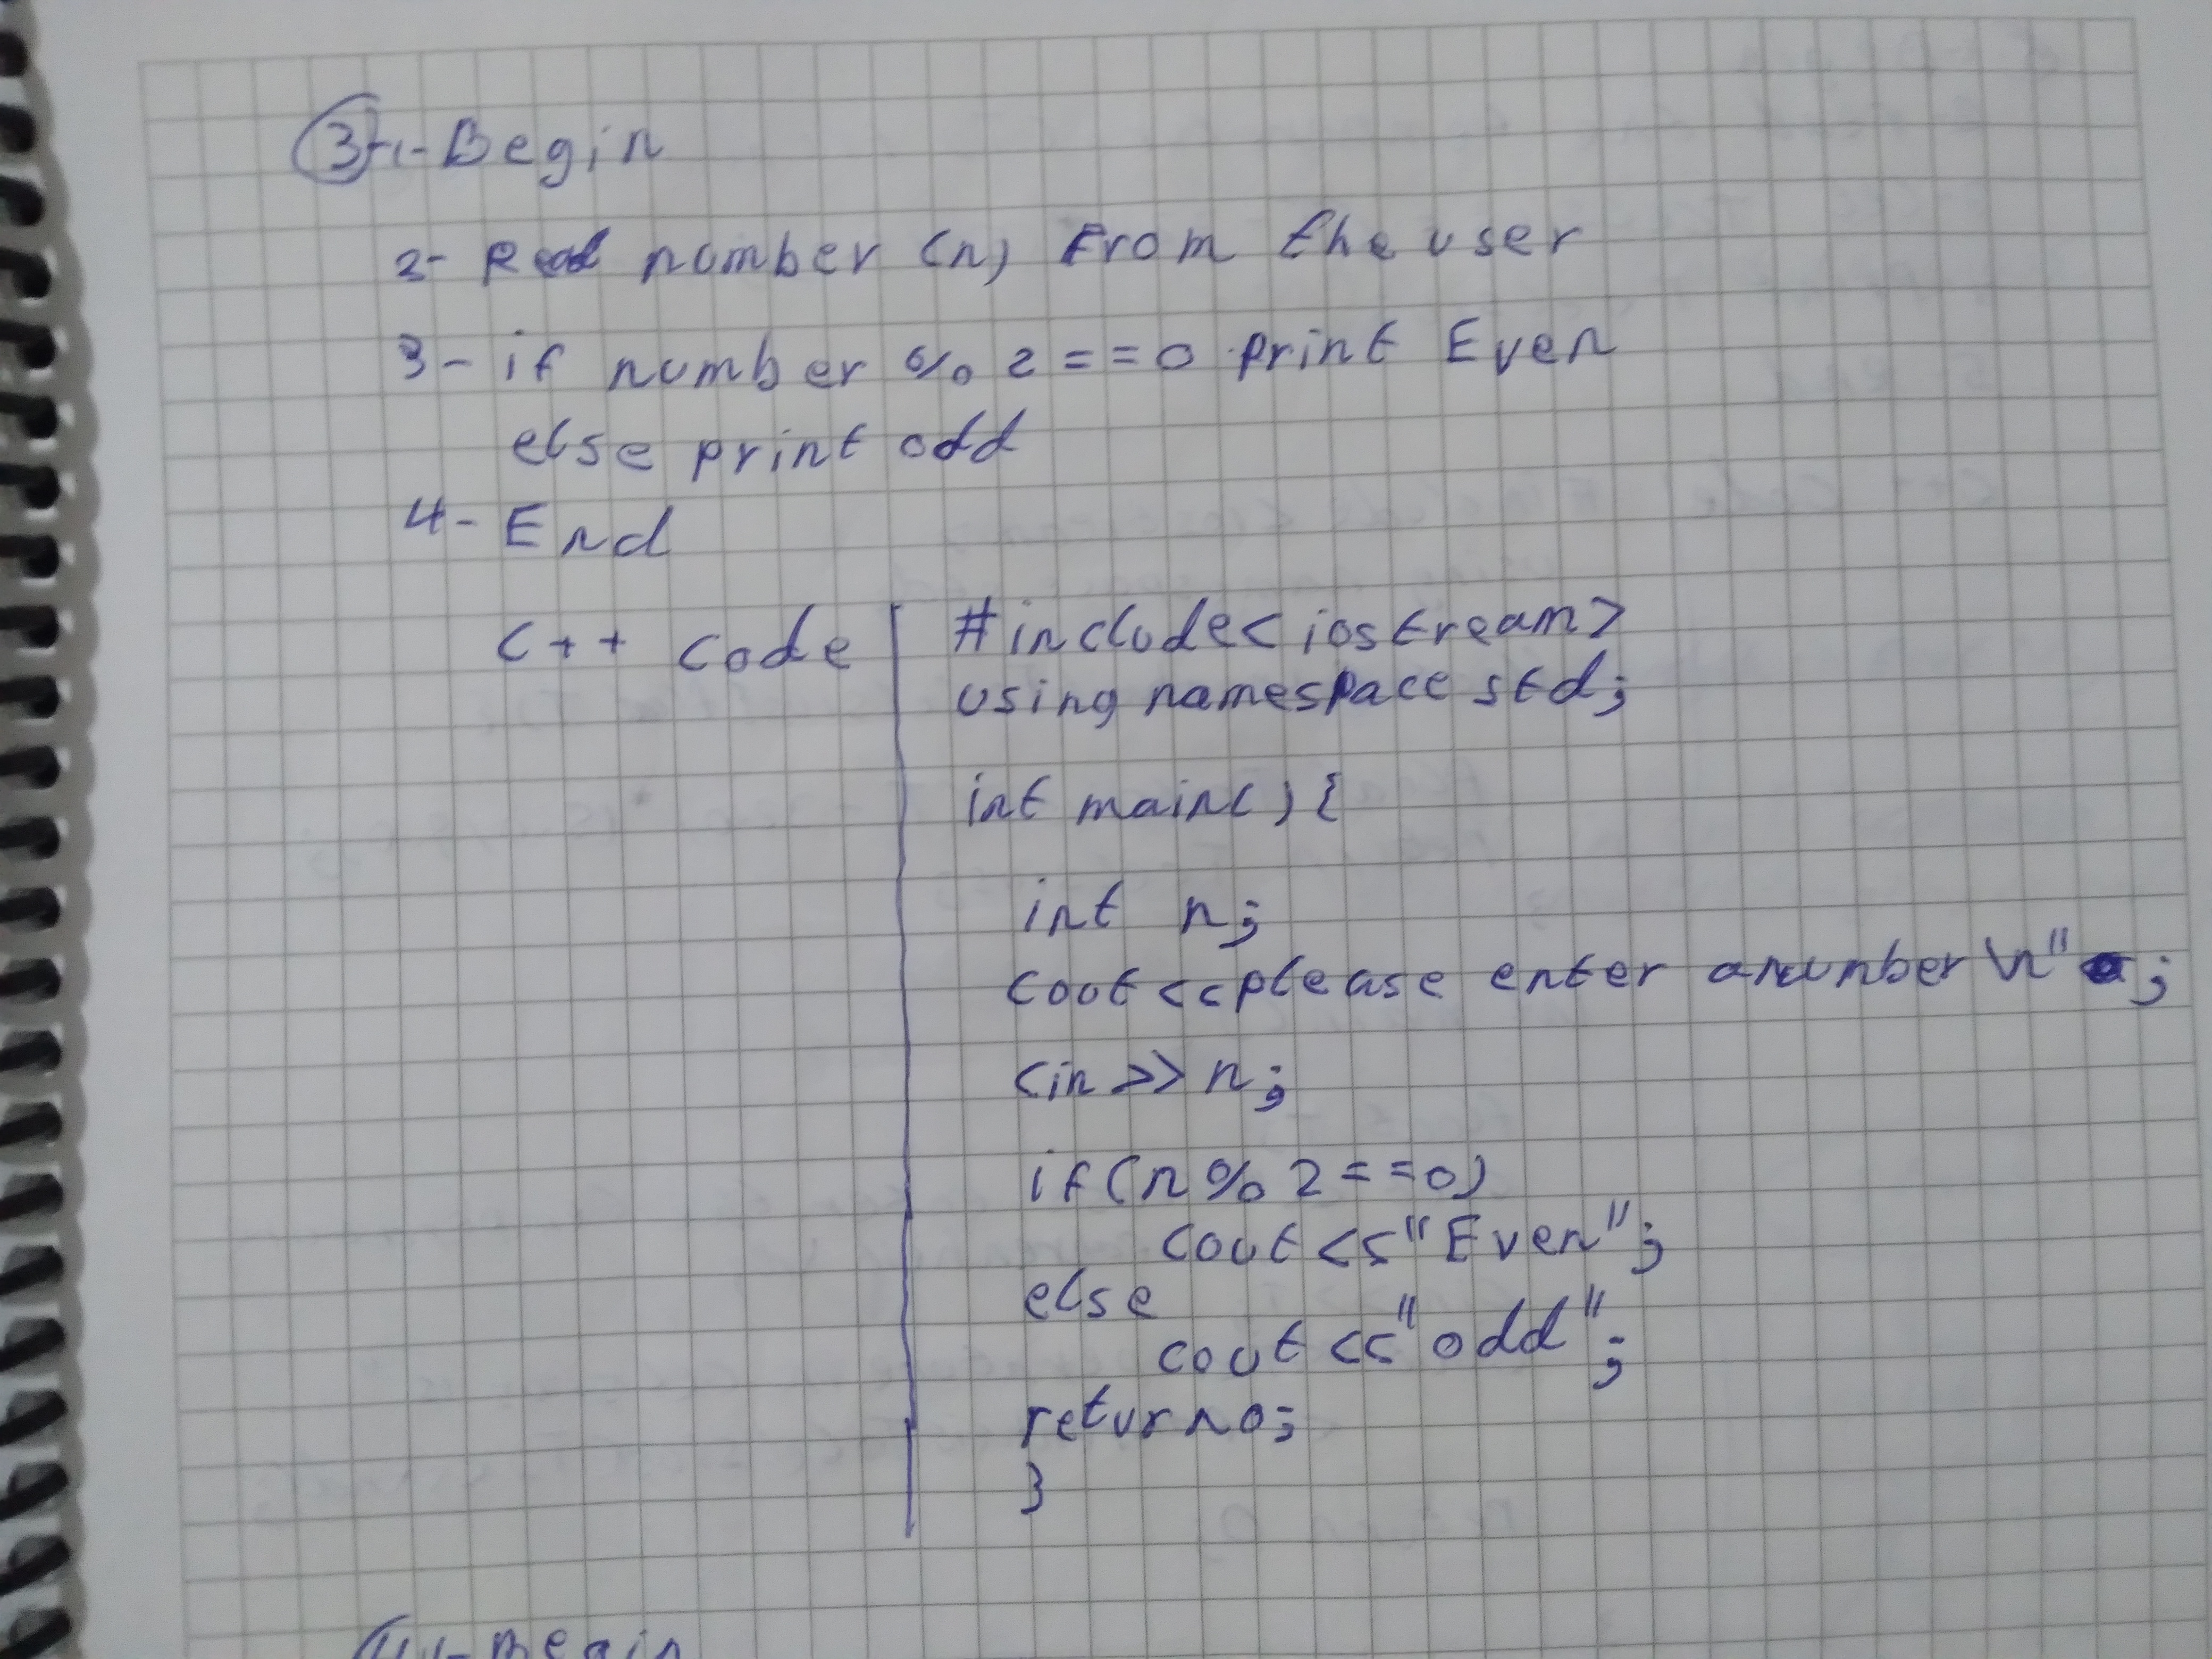 3-1-Begin
2- Read number (n) From the user
3- if number % 2 == 0 print Even
else print odd
4- End
C++ code
#include<iostream>
using namespace std;
int main(){
int n;
cout<<please enter a number \n" ;
cin>>n;
if(n%2==0)
cout<<"Even";
else
cout<<"odd";
return 0;
}
4-1-Begin